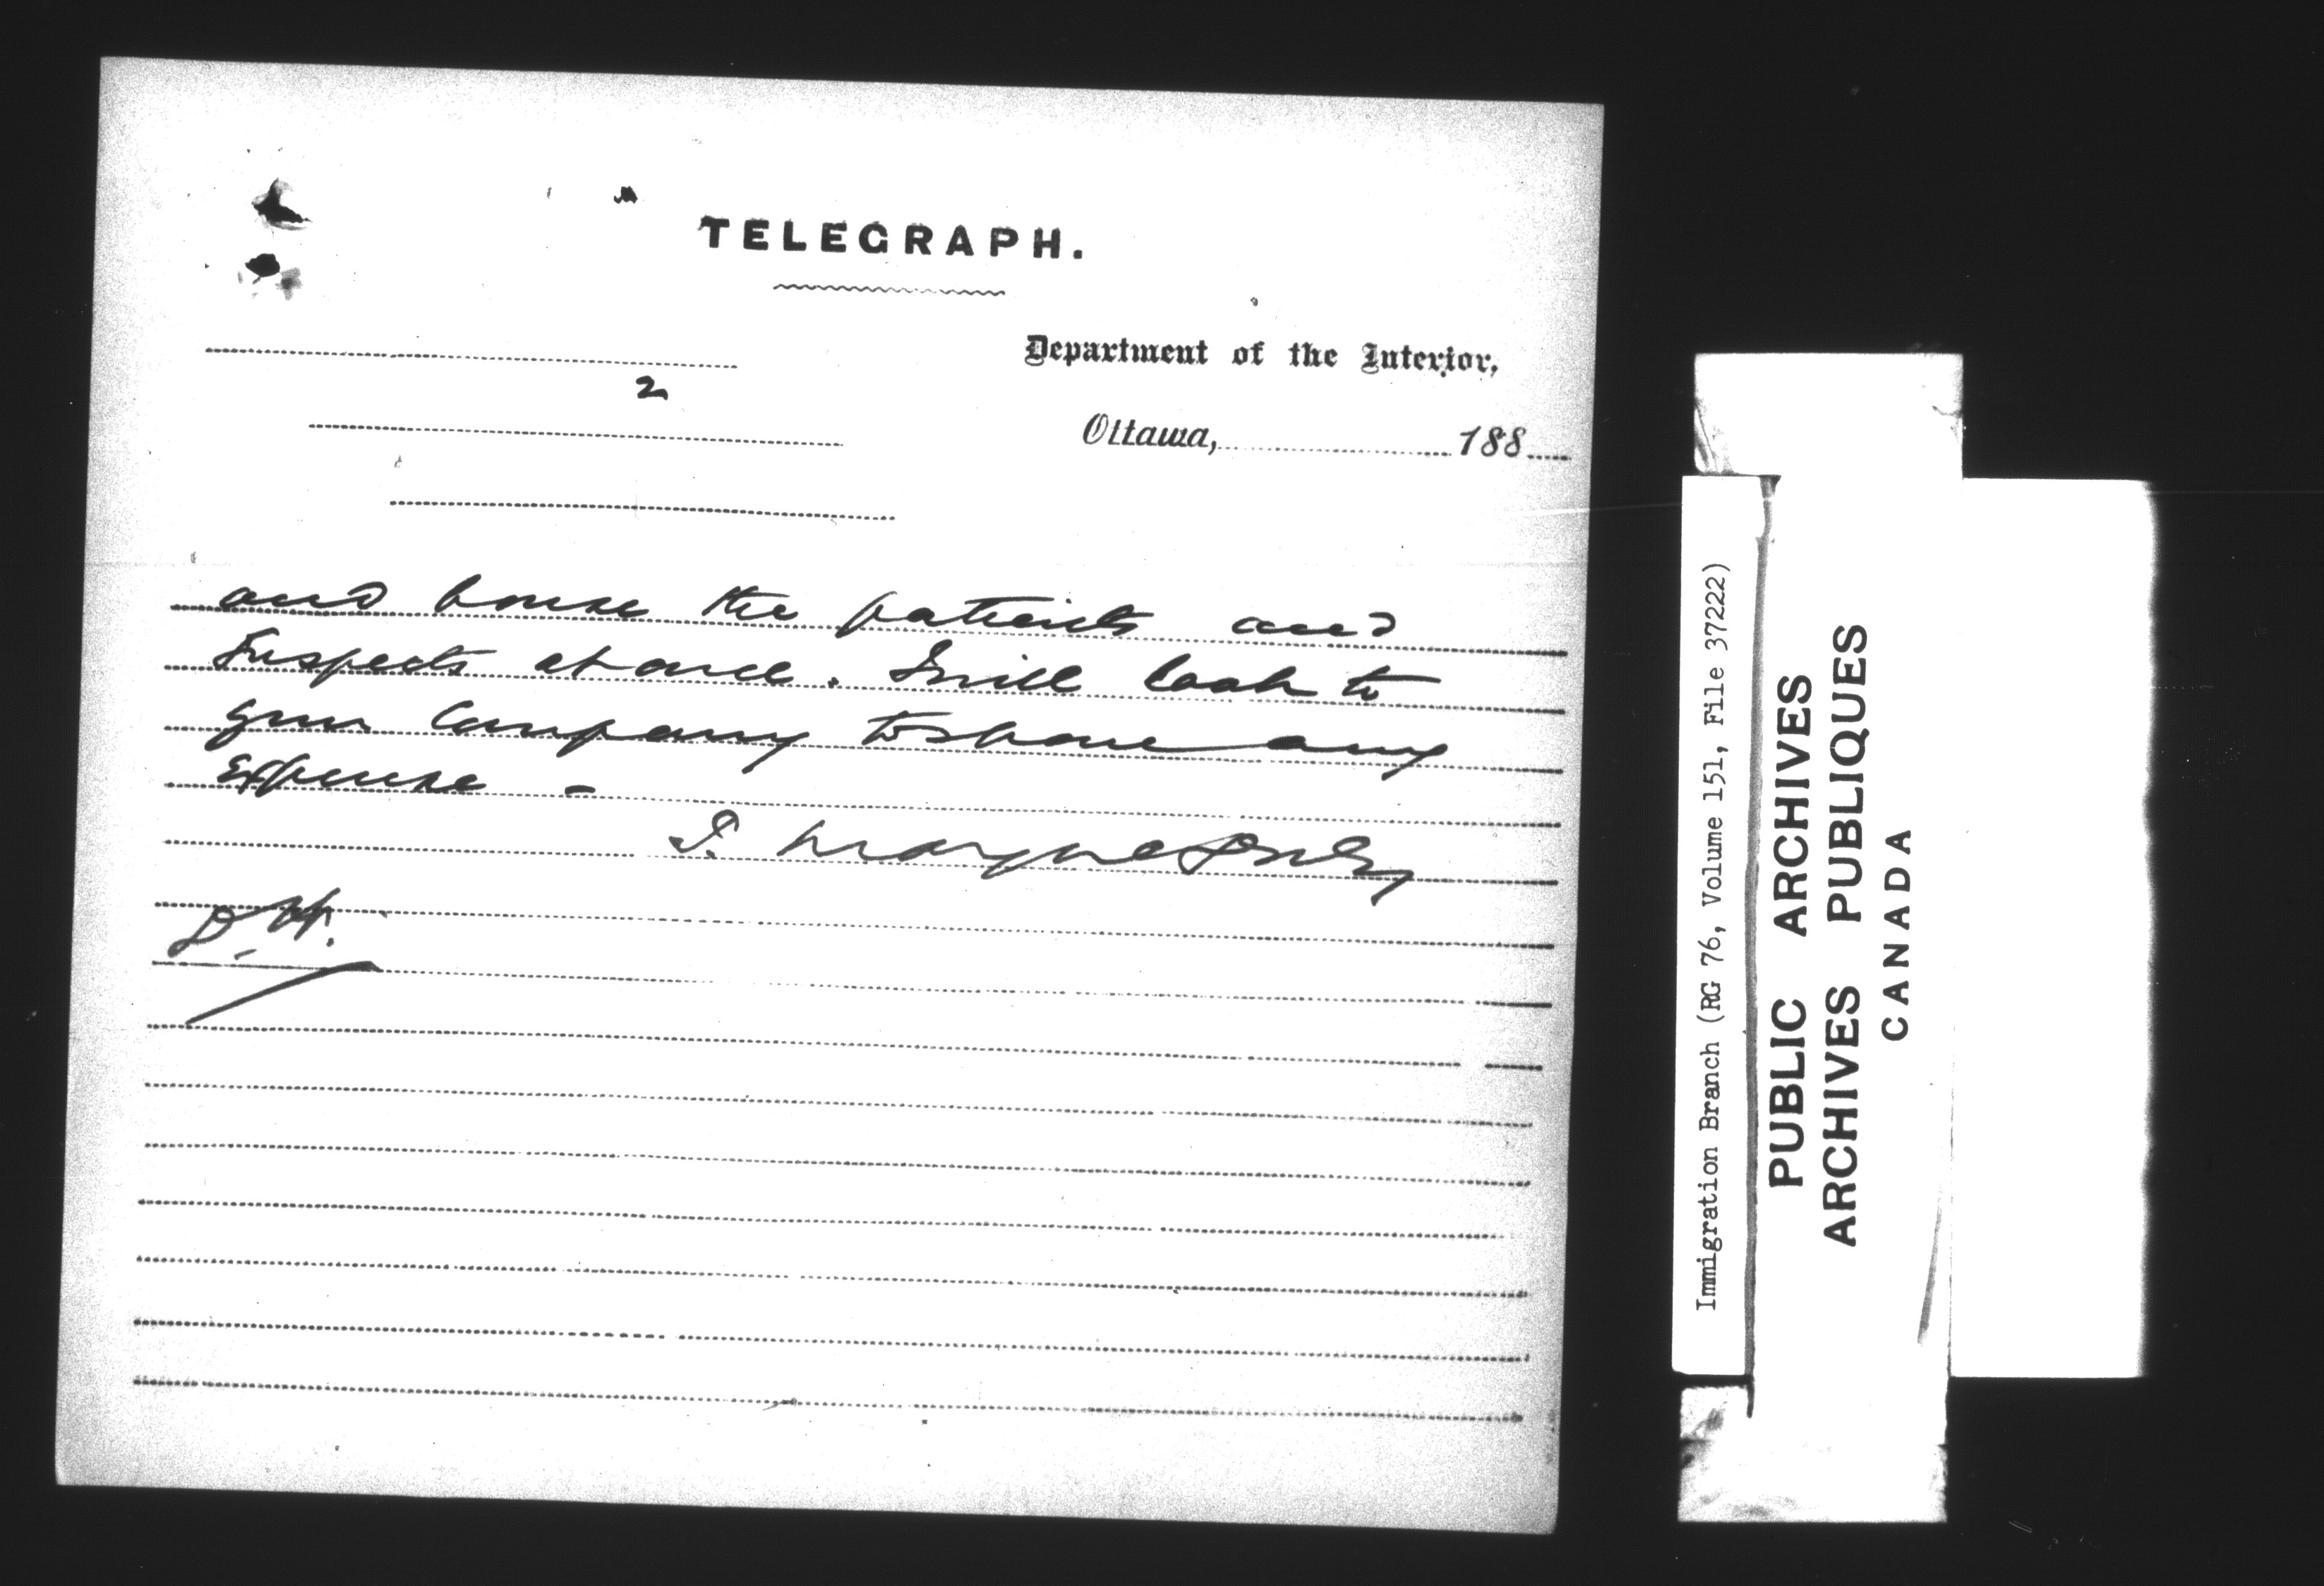 TELEGRAPH.
Department of the Interior,
2
Ottawa, 188
and house the patients and
Suspects at once. I will look to
your Company to share any
expense -
T. Mayne Daly
D-H.
Immigration Branch (RG 76, Volume 151, File 37222)
PUBLIC ARCHIVES
ARCHIVES PUBLIQUES
CANADA